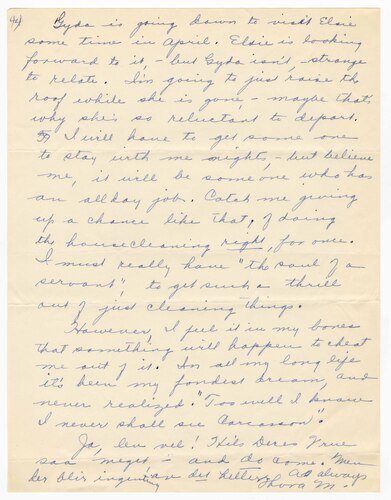 4)
Gyda is going down to visit Elsie
some time in April. Elsie is looking
forward to it, - but Gyda isn't, - strange
to relate. I'm going to just raise the
roof while she is gone, - maybe that's
why she's so reluctant to depart.
I will have to get some one
to stay with me nights, - but believe
me, it will be some one who has
an all day job. Catch me giving
up a chance like that, of doing
the housecleaning right, for once.
I must really have "the soul of a
servant", to get such a thrill
out of just cleaning things.
However, I feel it in my bones
that something will happen to cheat
me out of it. In all my long life
it's been my fondest dream, and
never realized. "Too well I know
I never shall see Carcasson".
Ja, lev vel! Hils Deres Frue
saa meget - and do come. Men
der blir ingenting av det heller. As always
Thora M.